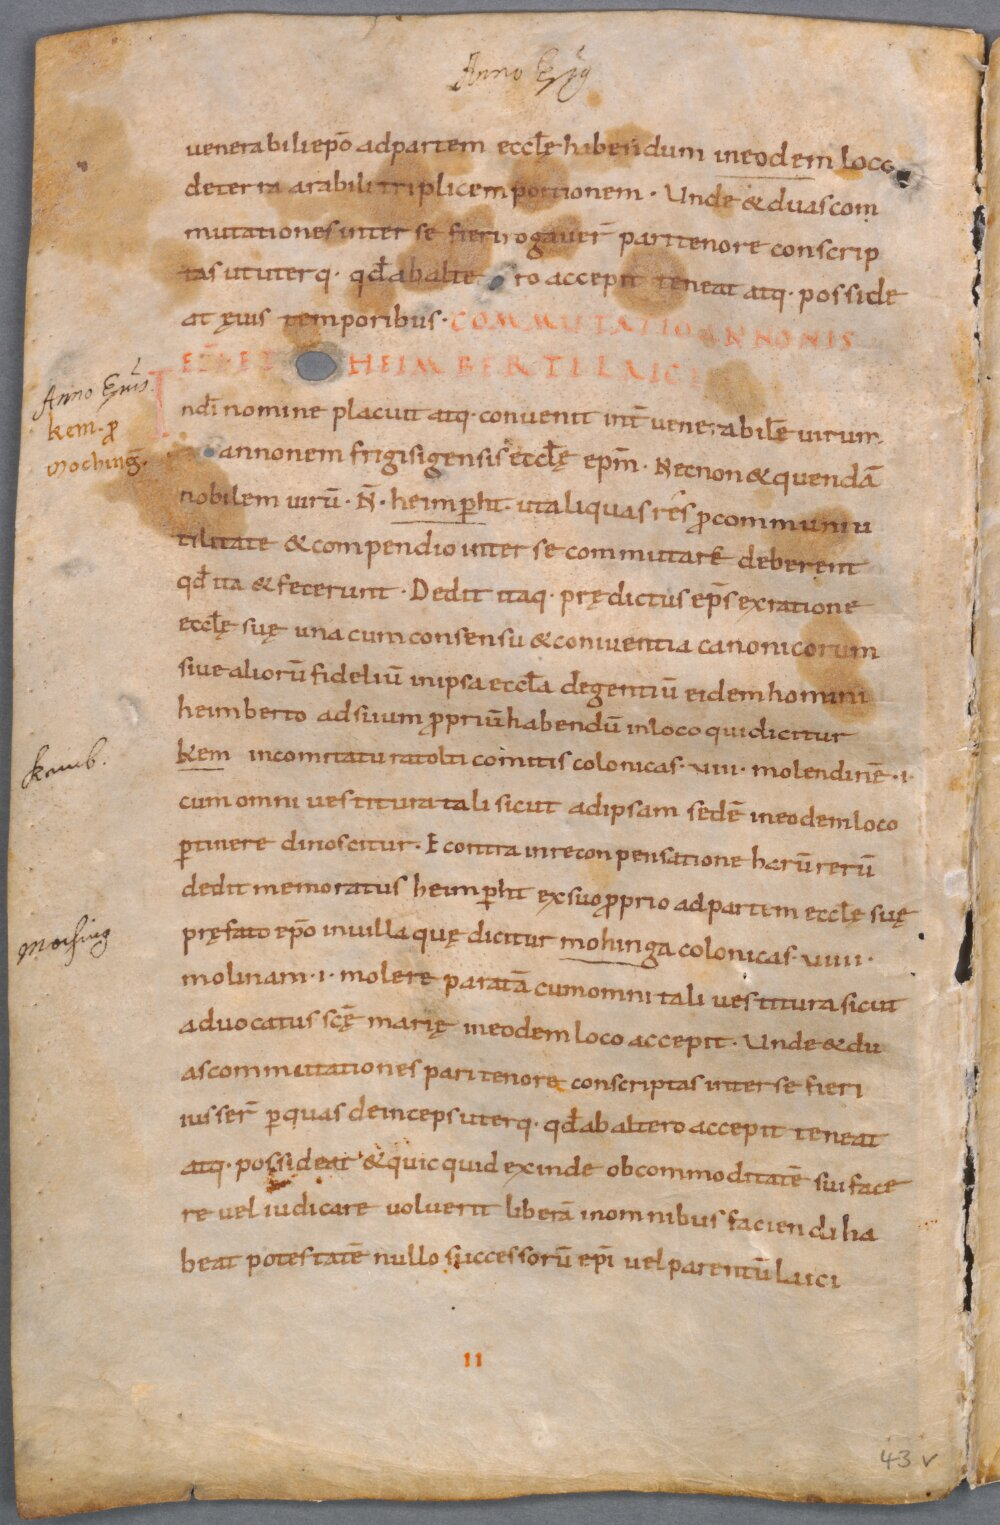 Anno Ep̄s
venerabili ep̄o ad partem eccl̄ę habendum in eodem loco
de terra arabili triplicem portionem · Unde & duas com
mutationes inter se fieri rogaver̄ pari tenore conscrip
tas ut uterq· qd̄ ab alte ro accepit teneat atq· posside
at ęvis temporibus · COMMUTATIO ANNONIS
EP̄I ET HEIMBERTI LAICI
Anno Ep̄us
In dī nomine placuit atq· convenit int̄ venerabilē virum
kem· ꝓ
Mochinḡ·
annonem frigisigensis eccl̄ę epm̄ · Necnon & quendā
nobilem virū · N̄ · heimꝑht · ut aliquas res ꝓ communi u
tilitate & compendio inter se commutare deberent
qd̄ ita & fecerunt · Dedit itaq· prędictus ep̄s ex ratione
eccl̄ę suę una cum consensu & coniventia canonicorum
sive aliorū fideliū in ipsa eccl̄a degentiū eidem homini
heimberto ad suum ꝓpriū habendū in loco qui dicitur
kemb·
kem in comitatu ratolti comitis colonicas · viii · molendinē · i ·
cum omni vestitura tali sicut ad ipsam sedē in eodem loco
ꝑtinere dinoscitur · E contra in reconpensatione harū rerū
dedit memoratus heimꝑht ex suo ꝓprio ad partem eccl̄ę suę
Moching
pręfato ep̄o in villa quę dicitur mohinga colonicas · viiii ·
molinam · i · molere paratā cum omni tali vestitura sicut
advocatus scę̄ marię in eodem loco accepit · Unde & du
as commutationes pari tenore conscriptas inter se fieri
iusser̄ ꝑ quas deinceps uterq· qd̄ ab altero accepit teneat
atq· possideat & quicquid exinde ob commoditatē sui face
re vel iudicare voluerit liberā in omnibus faciendi ha
beat potestatē nullo successorū epī vel parentū laici
11
43 v